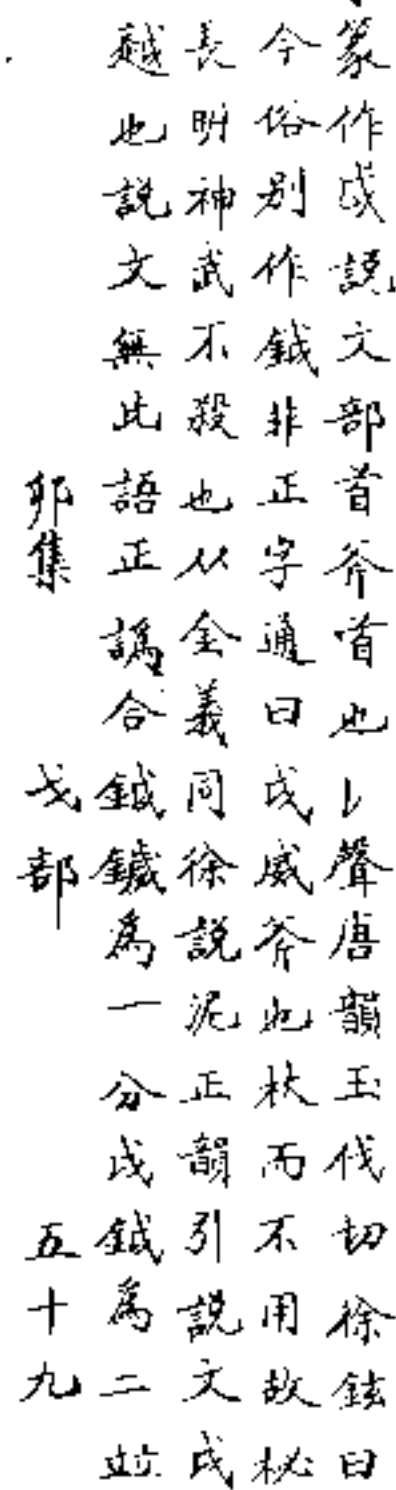 篆作戉說文部首斧首也𠄌聲唐韻玉伐切徐鉉曰
今俗別作鉞非正字通曰戉威斧也杖而不用故秘
長明神武不殺也从全義同徐說泥正韻引說文戉
越也說文無此語正譌合鉞鐬為一分戉鉞為二竝
卯集 戈部 五十九